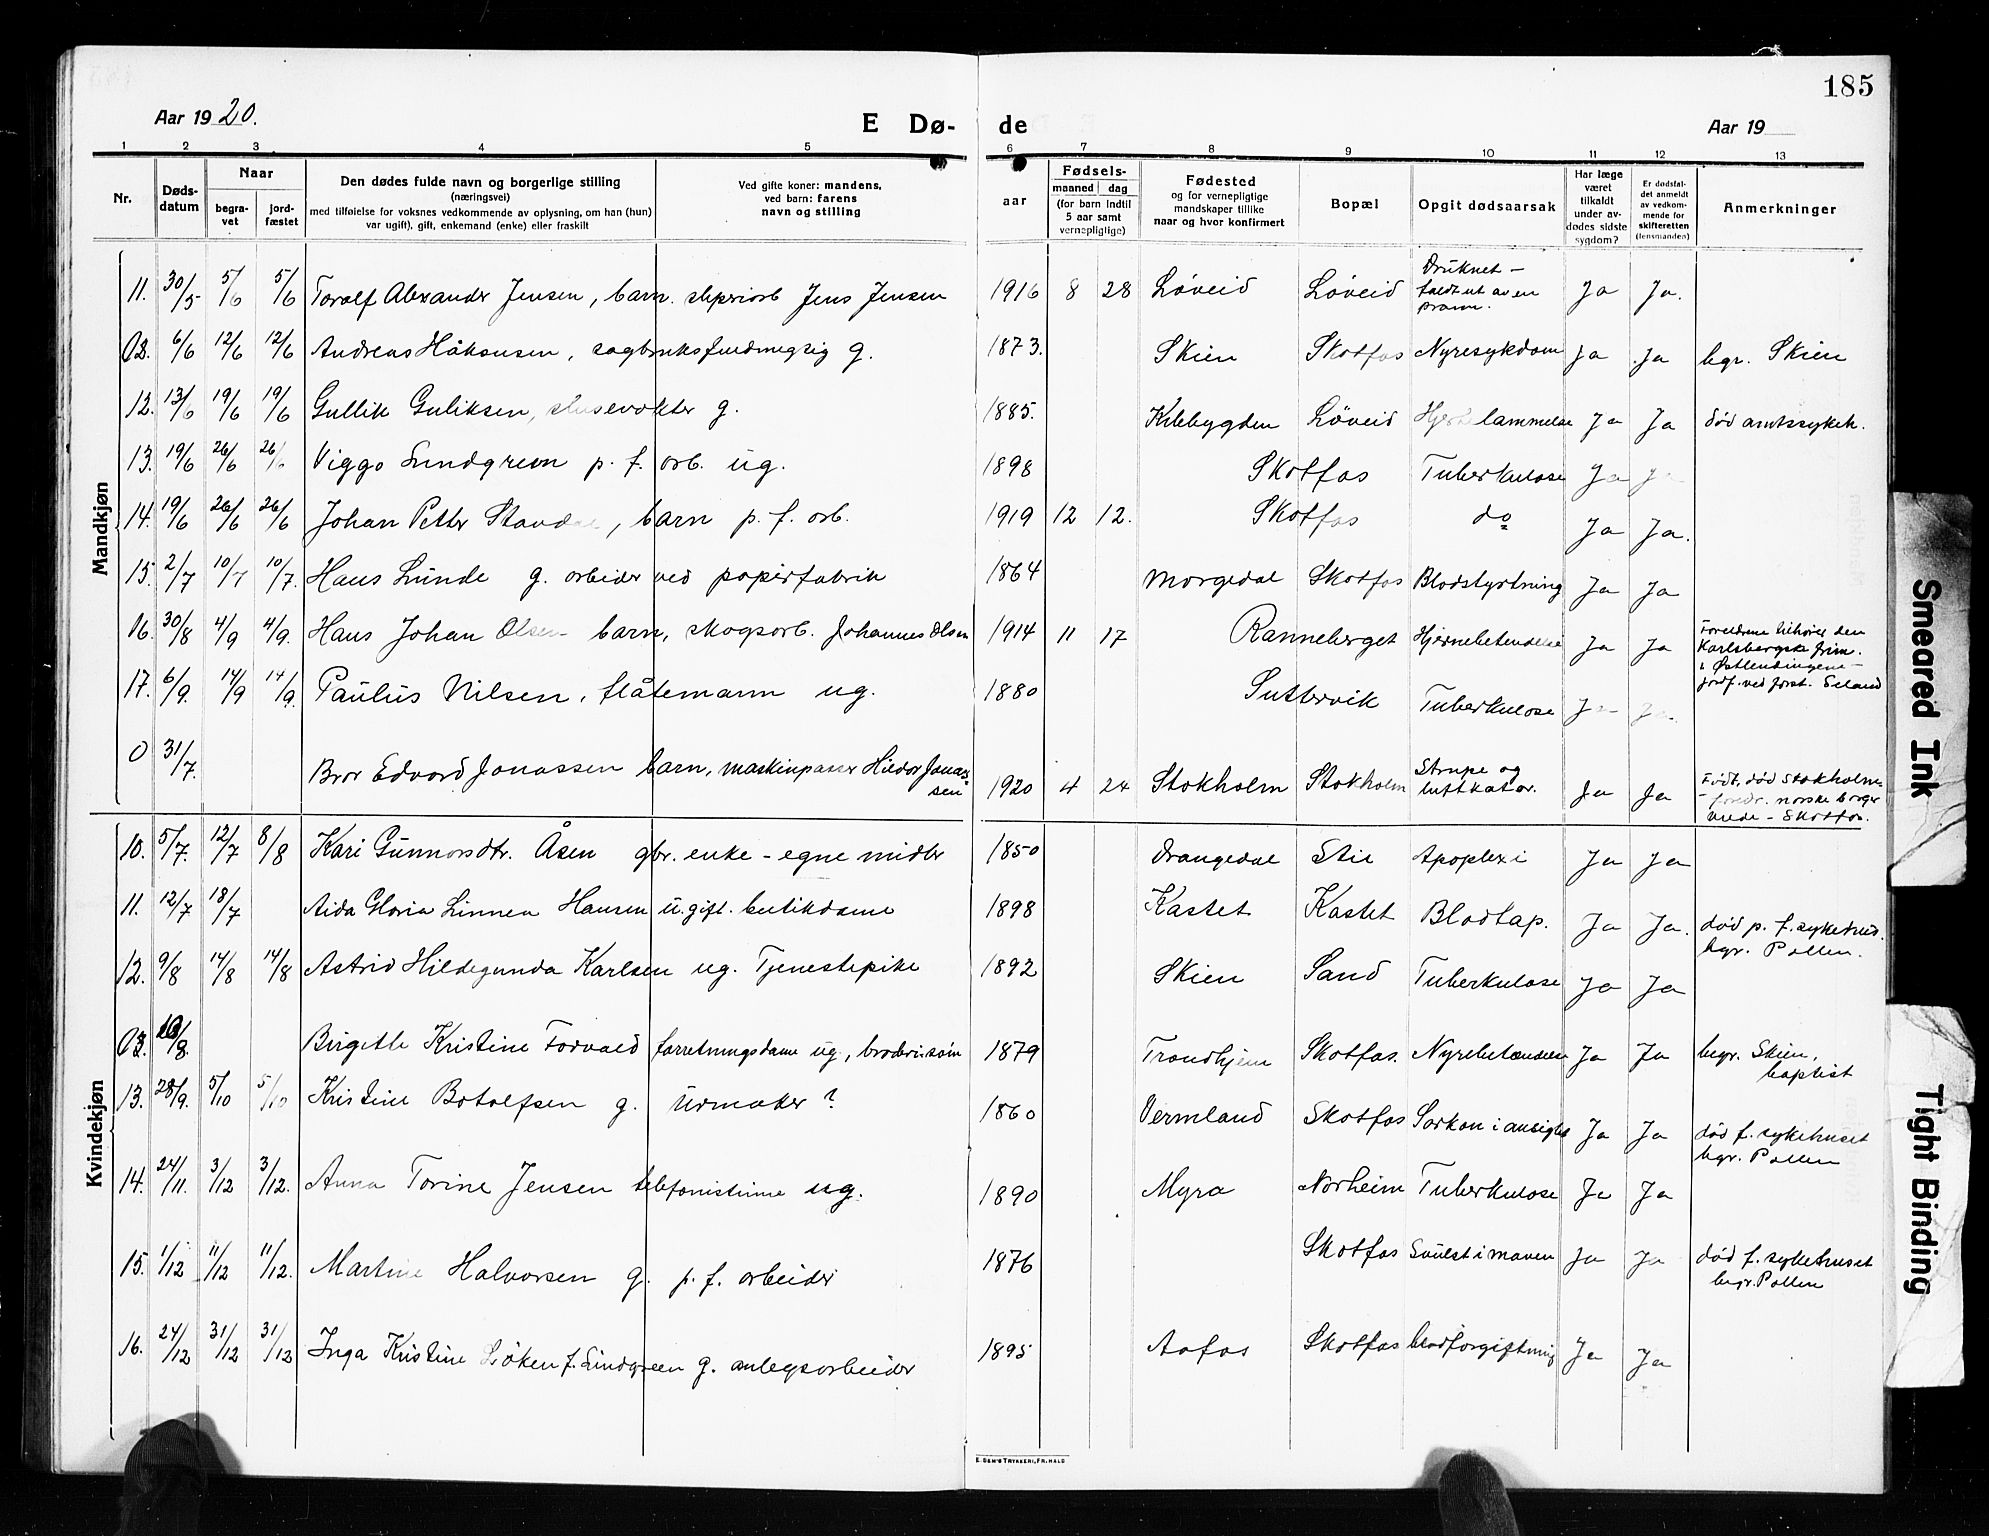 185
Aar 1920. E Dø- de Aar 19
1 2 3 4 5 6 7 8 9 10 11 12 13
Nr. Døds-datum Naar begra-vet jord-fæstet Den dødes fulde navn og borgerlige stilling (næringsvei) med tilføielse for voksnes vedkommende av oplysning, om han (hun) var ugift), gift, enkemand (enke) eller fraskilt Ved gifte koner: mandens, ved barn: farens navn og stilling aar Fødsels- maaned dag (for barn indtil 5 aar samt vernepligtige) Fødested og for vernepligtige mandskaper tillike naar og hvor konfirmert Bopæl Opgit dødsaarsak Har læge været tilkaldt under av-dødes sidste sygdom? Er dødsfal-det anmeldt av vedkom-mende for skifteretten (lensmanden) Anmerkninger
Mandkjøn
11. 30/5 5/6 5/6 Toralf Alexander Jensen, barn. sliperiarb Jens Jensen 1916 8 28 Løveid Løveid Druknet - faldt ut av en pram. Ja Ja.
02. 6/6 12/6 12/6 Andreas Håkonsen, sagbruksfuldmegtig g. 1873. Skien Skotfos Nyresykdom Ja Ja begr. Skien
12. 13/6 19/6 19/6 Gullik Guliksen, slusevokter g. 1885. Kilebygden Løveid Hjertelammelse Ja Ja død amtssykeh.
13. 19/6 26/6 26/6 Viggo Lundgreen p. f. arb. ug. 1898 Skotfos Tuberkulose Ja Ja
14. 19/6 26/6 26/6 Johan Petter, barn p. f. arb. 1919 12 12. Skotfos do Ja Ja.
15. 2/7 10/7 10/7. Hans Lunde g. arbeider ved papirfabrik 1864 Morgedal Skotfos Blodstyrtning Ja Ja
16. 30/8 4/9 4/9. Hans Johan Olsen barn, skogsarb. Johannes Olsen 1914 11 17 Ranneberget Hjernebetendelse Ja Ja Foreldrene tilhører den Karlsbergske frim. i Østlendingene - jordf. ved forst. Seland
17. 6/9. 14/9 14/9. Paulus Nilsen, flåtemann ug. 1880 Suttervik Tuberkulose Ja Ja.
0 31/7. Bror Edvard Jonassen barn, maskinpasser Hildor Jonas-sen 1920 4 24 Stokholm Stokholm Strupe og luftkatar. Ja Ja Født, død Stokholm - foreldr. norske borger Skotfos.
Kvindekjøn
10. 5/7. 12/7 8/8 Kari Gunnorsdtr. Åsen gbr. enke - egne midler 1850 Drangedal Stie Apoplexi Ja Ja
11. 12/7 18/7 Aida Gloria Linnea Hansen u.gift. butikdame 1898 Kastet Kastet Blodtap. Ja Ja. død p. f. sykehus. begr. Pollen.
12. 9/8 14/8 14/8 Astrid Hildegunda Karlsen ug. Tjenestepike 1892 Skien Sand Tuberkulose Ja Ja
03. /8. Birgitte Kristine Forvald forretningsdame ug., broderi: søm 1879 Trondhjem Skotfos. Nyrebetændelse Ja Ja begr. Skien, baptist
13. 28/9. 5/10 5/10 Kristine Botolfsen g. Urmaker? 1860 Vermland Skotfos Sarkon i ansigtet Ja Ja død f. sykehuset begr. Pollen
14. 24/11. 3/12 3/12. Anna Torine Jensen telefonistinne ug. 1890 Myra Norheim Tuberkulose Ja Ja
15. 1/12 11/12 11/12. Martine Halvorsen g. p. f. arbeider 1876 Skotfos Svulst i maven Ja Ja død f. sykehuset begr. Pollen
16. 24/12 31/12 31/12 Inga Kristine Løken f. Lindgreen g. anlegsarbeider 1895 Aafos Skotfos blodforgiftning Ja Ja
E. SEM'S TRYKKERI, FR.HALD
Smeared Ink
Tight Binding